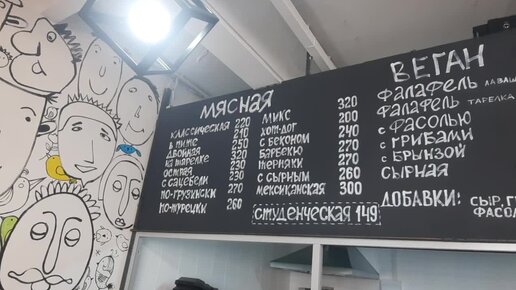 МЯСНАЯ
классическая 220
в пите 210
двойная 250
на тарелке 320
острая 230
с сацебели 230
по-грузински 270
по-турецки 260
микс 320
хот-дог 200
с беконом 240
барбекю 270
терияки 260
с сырным 260
мексиканская 300
студенческая 149
ВЕГАН
фалафель лаваш
фалафель тарелка
с фасолью
с грибами
с брынзой
сырная
добавки: сыр, гр
фасол